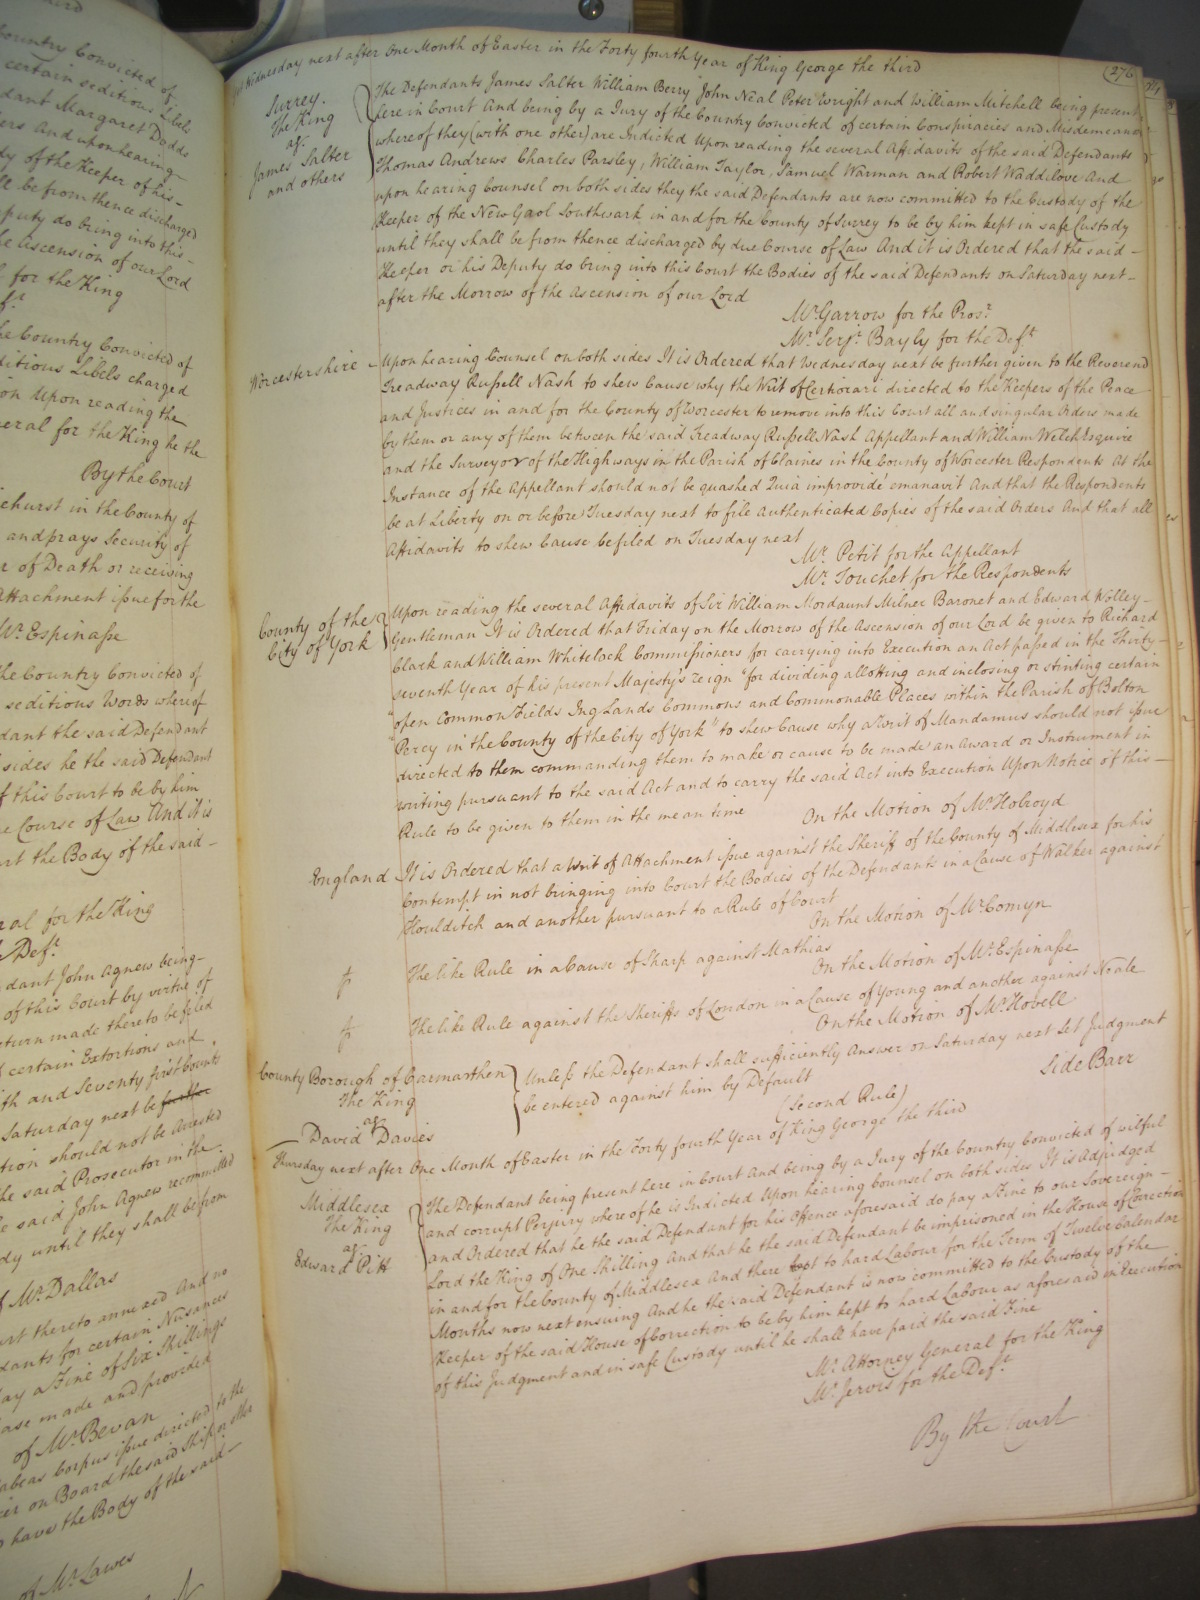 ountry Convicted of
certain seditious Libels
dant Margaret Dodds
ers And upon hearing
dy of the Keeper of his
ll be from thence discharged
puty do bring into this
he Ascension of our Lord
l for the King
he Country Convicted of
ditious Libels charged
on Upon reading the
neral for the King he the
By the Court
ehurst in the County of
and prays Security of
r of Death or receiving
Attachment issue for the
Mr. Espinasse
the Country Convicted of
seditious Words whereof
dant the said Defendant
sides he the said Defendant
f this Court to be by him
e Course of Law And it is
urt the Body of the said
ral for the King
Deft.
dant John Agnew being
of this Court by virtue of
eturn made thereto be filed
d certain Extortions and
th and Seventy first Counts
Saturday next be further
tion should not be Arrested
the said Prosecutor in the
e said John Agnew recommitted
dy until they shall be from
f Mr. Dallas
urt thereto annexed And no
dants for certain Nusances
ay a Fine of Six Shillings
ase made and provided
of Mr. Bevan
abeas Corpus issue directed to the
cer on Board the said Ship or other
o have the Body of the said
of Mr. Lawes
Wednesday next after One Month of Easter in the Forty fourth Year of King George the third
276
Surrey.
The King
agt.
James Salter
and others
The Defendants James Salter William Berry John Neal Peter Wright and William Mitchell being present
here in Court And being by a Jury of the Country Convicted of certain Conspiracies and Misdemeanors
whereof they (with one other) are Indicted Upon reading the several Affidavits of the said Defendants
Thomas Andrews Charles Parsley, William Taylor, Samuel Warman and Robert Waddilove And
upon hearing Counsel on both sides they the said Defendants are now committed to the Custody of the
Keeper of the New Gaol Southwark in and for the County of Surrey to be by him kept in safe Custody
until they shall be from thence discharged by due Course of Law And it is Ordered that the said
Keeper or his Deputy do bring into this Court the Bodies of the said Defendants on Saturday next
after the Morrow of the Ascension of our Lord
Mr. Garrow for the Prosr.
Mr. Serjt. Bayly for the Deft
Worcestershire
Upon hearing Counsel on both sides It is Ordered that Wednesday next be further given to the Reverend
Treadway Russell Nash to shew Cause why the Writ of Certiorari directed to the Keepers of the Peace
and Justices in and for the County of Worcester to remove into this Court all and singular Orders made
by them or any of them between the said Treadway Russell Nash Appellant and William Welch Esquire
and the Surveyor of the Highways in the Parish of Claines in the County of Worcester Respondents At the
Instance of the Appellant should not be quashed Quia improvide emanavit And that the Respondents
be at Liberty on or before Tuesday next to file Authenticated Copies of the said Orders And that all
Affidavits to shew Cause be filed on Tuesday next
Mr. Petit for the Appellant
Mr. Touchet for the Respondents
County of the
City of York
Upon reading the several Affidavits of Sir William Mordaunt Milner Baronet and Edward Willey
Gentleman It is Ordered that Friday on the Morrow of the Ascension of our Lord be given to Richard
Clark and William Whitelock Commissioners for carrying into Execution an Act passed in the Thirty
seventh Year of his present Majesty's reign "for dividing allotting and inclosing or stinting certain
"open Common Fields Ing Lands Commons and Commonable Places within the Parish of Bolton
"Percy in the County of the City of York" to shew Cause why a Writ of Mandamus should not issue
directed to them commanding them to make or cause to be made an Award or Instrument in
writing pursuant to the said Act and to carry the said Act into Execution Upon Notice of this
Rule to be given to them in the mean time
On the Motion of Mr. Holroyd
England
It is Ordered that a Writ of Attachment issue against the Sheriff of the County of Middlesex for his
Contempt in not bringing into Court the Bodies of the Defendants in a Cause of Walker against
Houlditch and another pursuant to a Rule of Court
On the Motion of Mr. Comyn
The like Rule in a Cause of Sharp against Mathias
On the Motion of Mr. Espinasse
The like Rule against the Sheriffs of London in a Cause of Young and another against Neale
On the Motion of Mr. Hovell
County Borough of Carmarthen
The King
agt.
David Davies
Unless the Defendant shall sufficiently Answer on Saturday next Let Judgment
be entered against him by Default
Side Barr
(Second Rule)
Thursday next after One Month of Easter in the Forty fourth Year of King George the third
Middlesex
The King
agt.
Edward Pitt
The Defendant being present here in Court And being by a Jury of the Country Convicted of wilful
and corrupt Perjury whereof he is Indicted Upon hearing Counsel on both sides It is Adjudged
and Ordered that he the said Defendant for his Offence aforesaid do pay a Fine to our Sovereign
Lord the King of One Shilling And that he the said Defendant be imprisoned in the House of Correction
in and for the County of Middlesex And there kept to hard Labour for the Term of Twelve Calendar
Months now next ensuing And he the said Defendant is now committed to the Custody of the
Keeper of the said House of Correction to be by him kept to hard Labour as aforesaid in Execution
of this Judgment and in safe Custody until he shall have paid the said Fine
Mr. Attorney General for the King
Mr. Jervis for the Deft.
By the Court